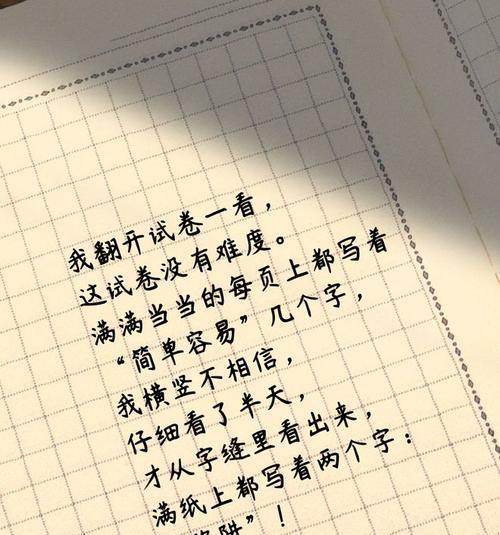 我翻开试卷一看，
这试卷没有难度。
满满当当的每页上都写着
“简单容易”几个字，
我横竖不相信，
仔细看了半天，
才从字缝里看出来，
满纸上都写着两个字：
阱”！